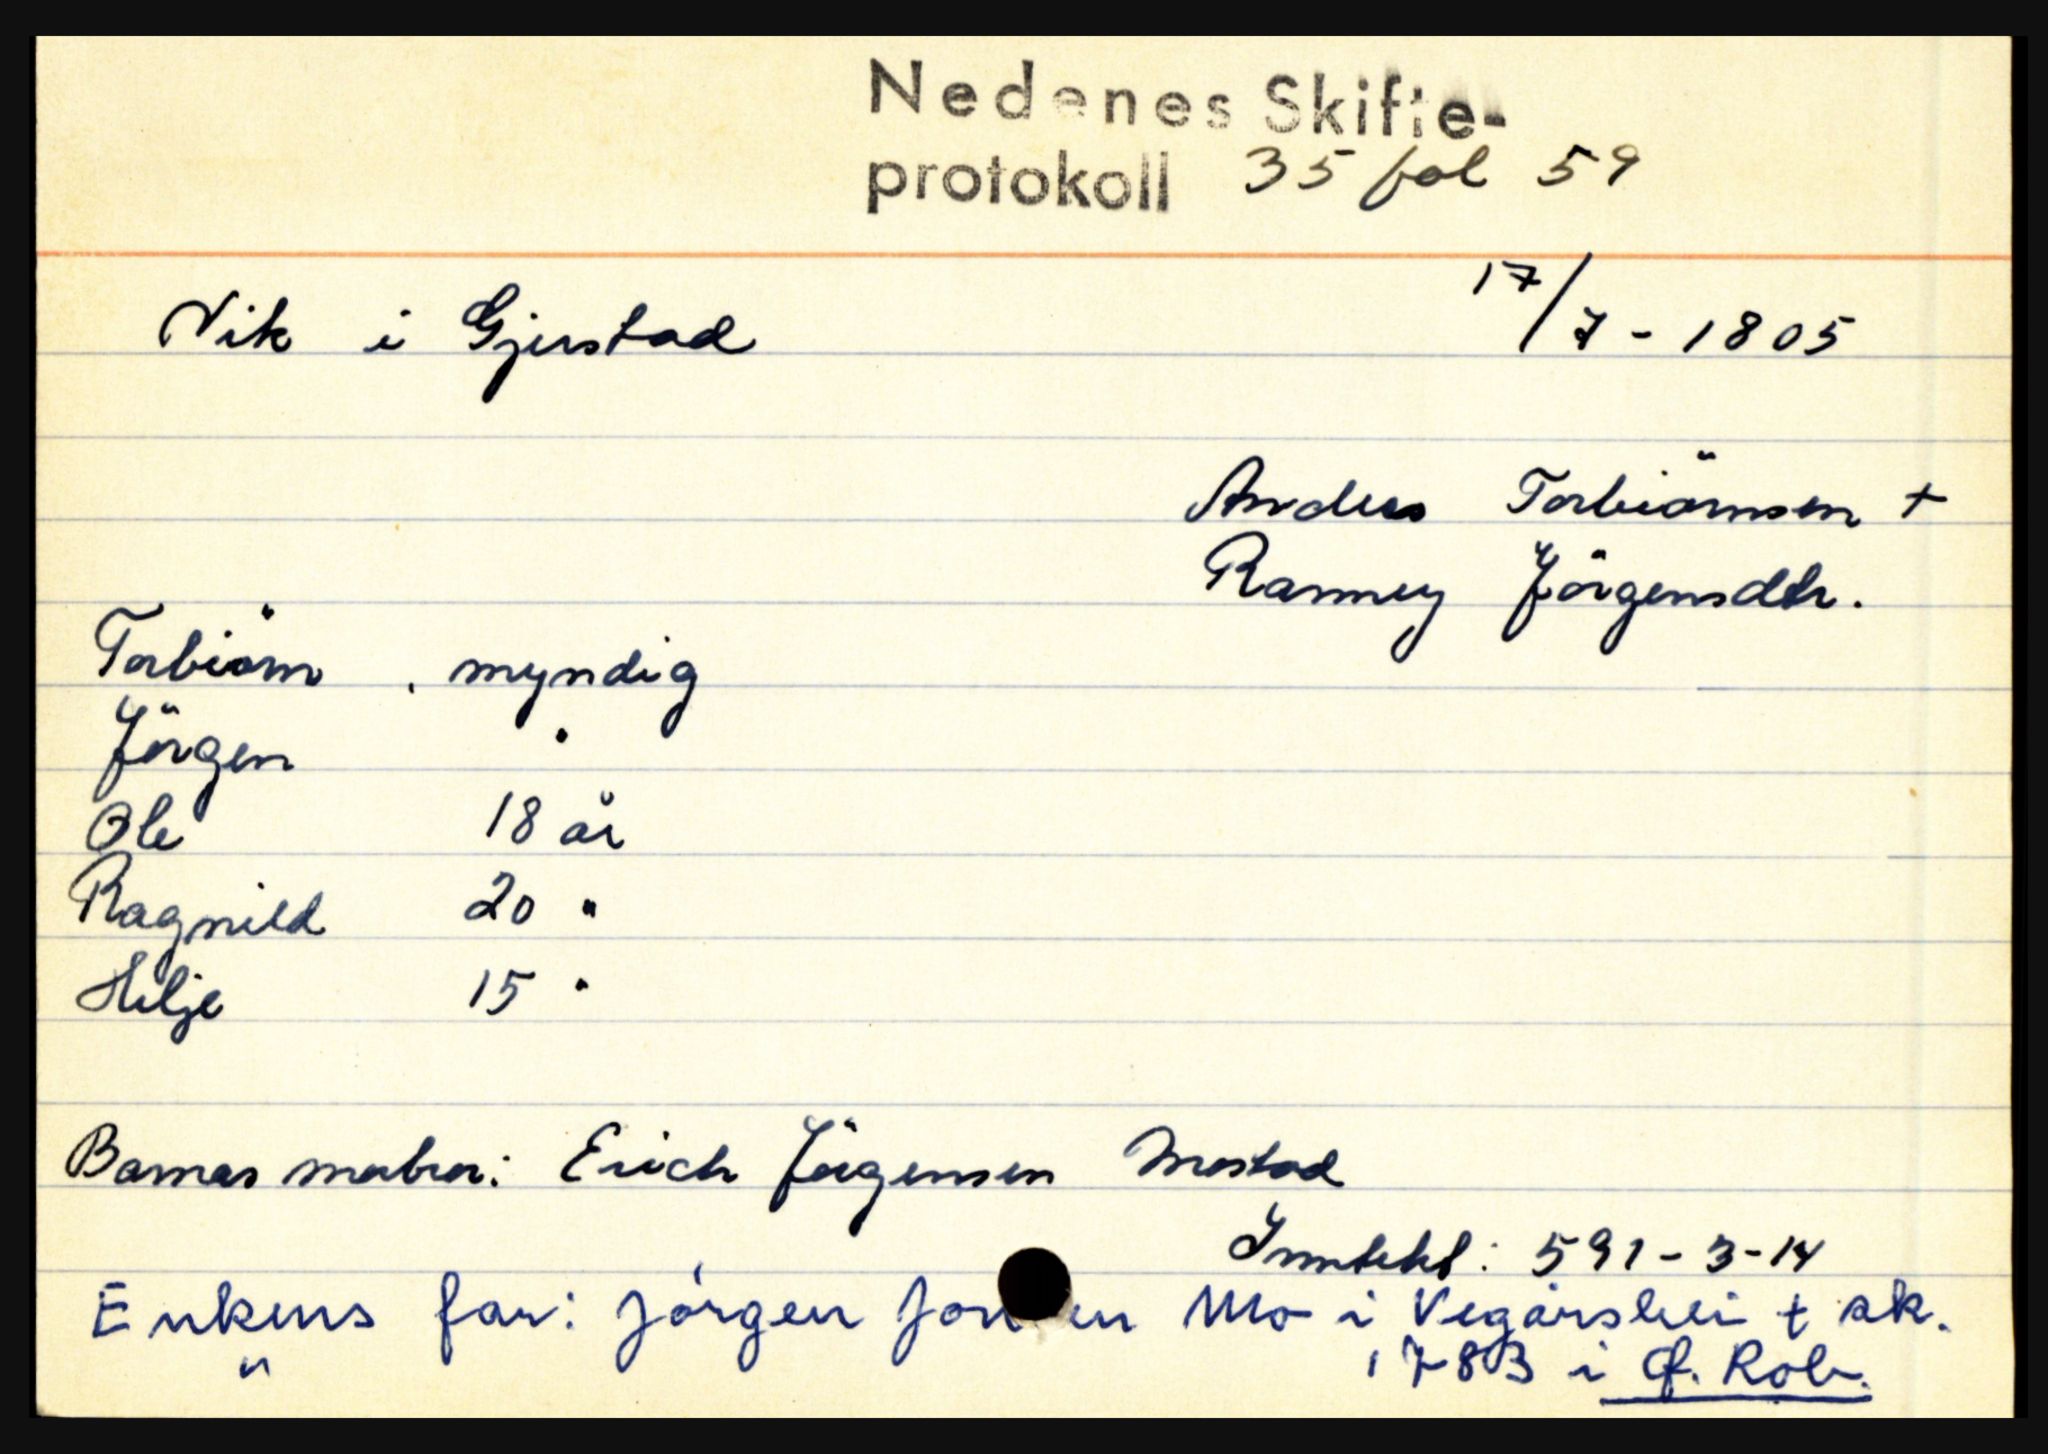 Nedenes Skifte-
protokoll 35 fol 59
Vik i Gjerstad 17/7 - 1805
Anders Torbiörnsen +
Ranney Jörgensdtr.
Torbiörn , myndig
Jörgen "
Ole 18 år
Ragnild 20 "
Helje 15 "
Barnas morbror: Erich Jörgensen Mostad
Inntekt: 591-3-14
Enkens far: Jörgen Jon en Mo i Vegårshei + sk.
" 1783 i Ø. Rob.